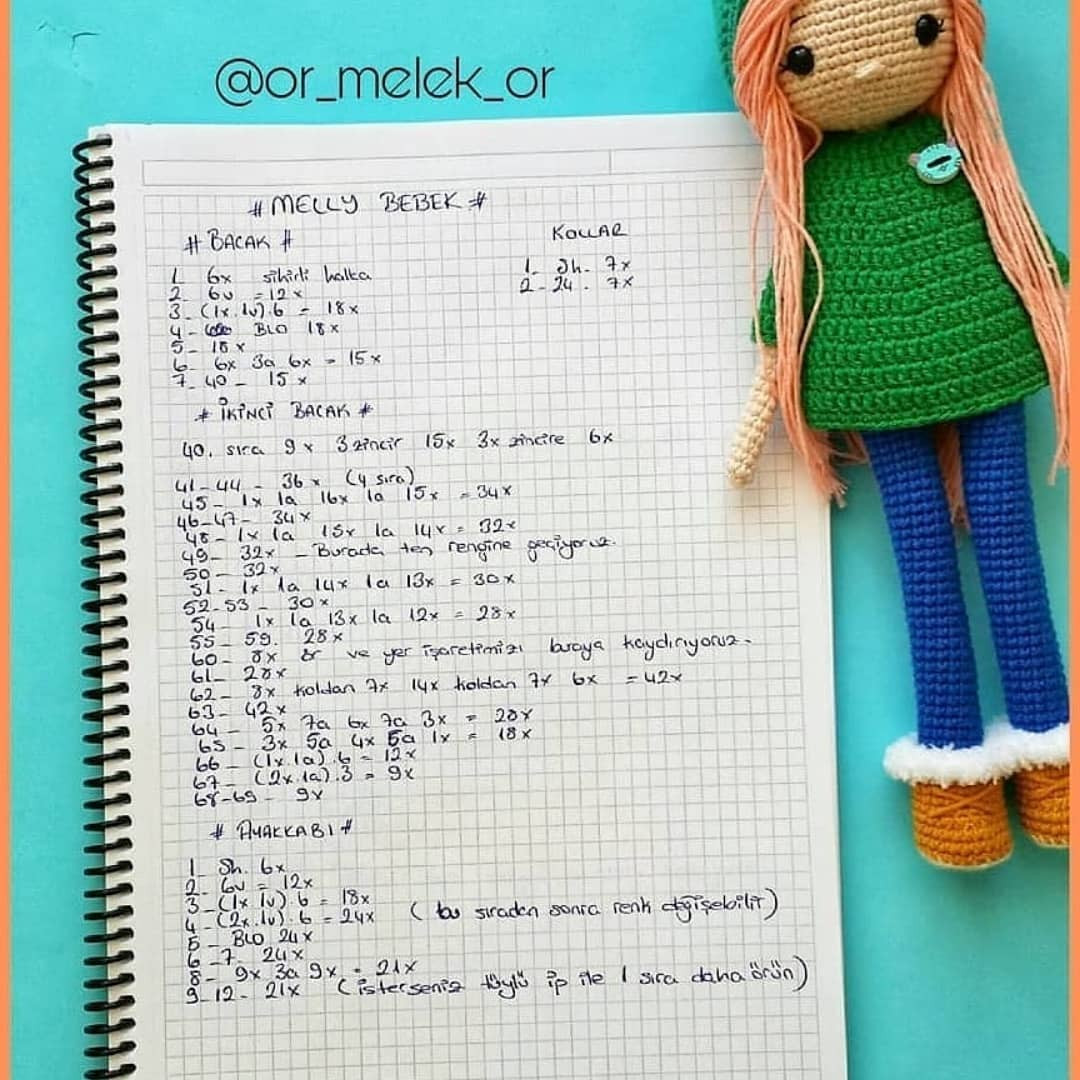 @or_melek_or
# MELLY BEBEK #
# BACAK #
1. 6x sihirli halka
2. 6v = 12x
3- (1x.1v).6 = 18x
4- BLO 18x
5- 18x
6- 6x 3a 6x = 15x
7-40- 15x
KOLLAR
1- Sh. 7x
2-24. 7x
# İKİNCİ BACAK #
40. sıra 9x 3 zincir 15x 3x zincire 6x
41-44 - 36x (4 sıra)
45- 1x 1a 16x 1a 15x = 34x
46-47- 34x
48- 1x 1a 15x 1a 14x = 32x
49- 32x - Burada ten rengine geçiyoruz.
50- 32x
51- 1x 1a 14x 1a 13x = 30x
52-53 - 30x
54- 1x 1a 13x 1a 12x = 28x
55- 59. 28x
60- 8x ör ve yer işaretimizi buraya kaydırıyoruz.
61- 28x
62- 8x koldan 7x 14x koldan 7x 6x = 42x
63- 42x
64- 5x 7a 6x 7a 3x = 28x
65- 3x 5a 4x 5a 1x = 18x
66- (1x.1a).6 = 12x
67- (2x.1a).3 = 9x
68-69- 9x
# AYAKKABI #
1- Sh. 6x
2- 6v = 12x
3- (1x 1v) 6 = 18x
4- (2x.1v).6 = 24x ( bu sıradan sonra renk değişebilir)
5- BLO 24x
6-7- 24x
8- 9x 3a 9x = 21x
9-12- 21x (isterseniz tüylü ip ile 1 sıra daha örün)